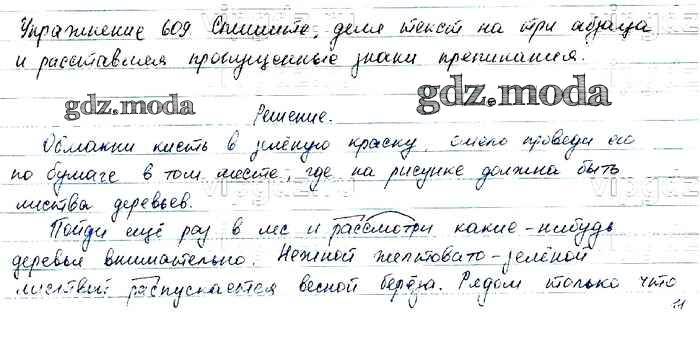 Упражнение 609 Спишите, деля текст на три абзаца
и расставляя пропущенные знаки препинания.
gdz.moda
gdz.moda
Решение.
Обмакни кисть в зелёную краску, смело проведи ею
по бумаге в том месте, где на рисунке должна быть
листва деревьев.
Пойди ещё раз в лес и рассмотри какие-нибудь
деревья внимательно. Нежной желтовато-зелёной
листвой распускается весной берёза. Рядом только что